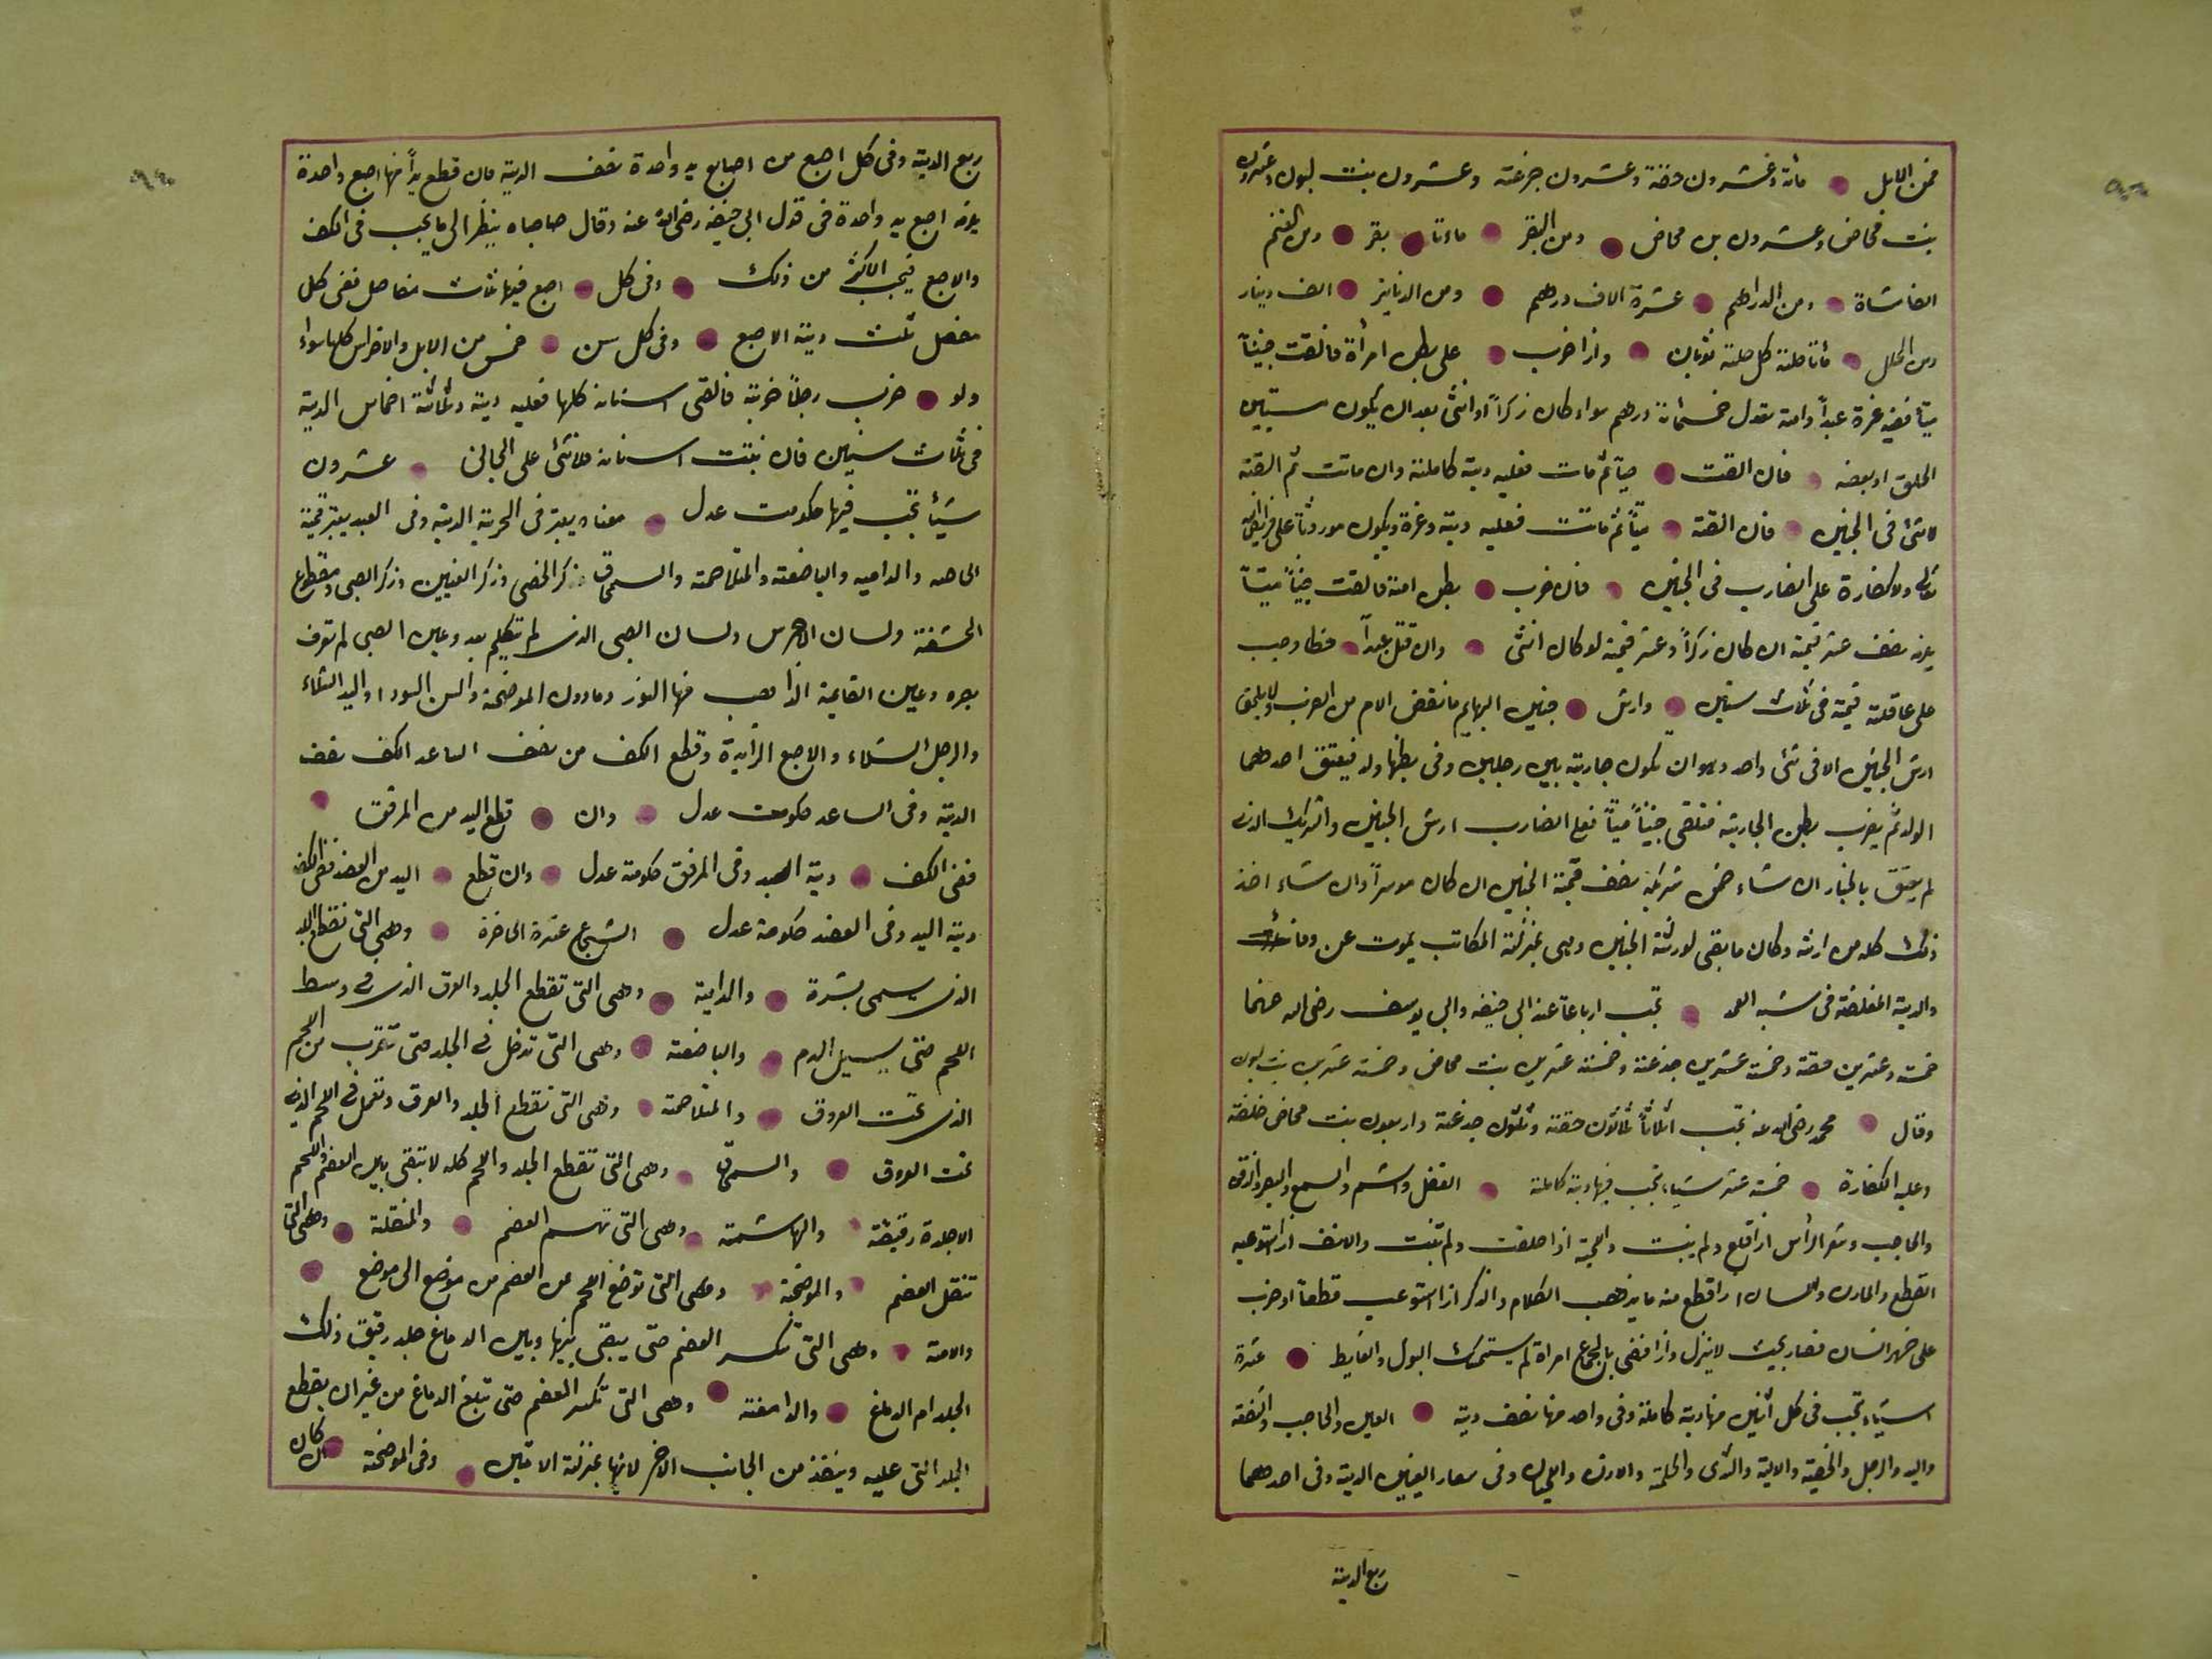 فمن الابل مائة وعشرون حقة وعشرون جزعته وعشرون بنت لبون وعشرون
بنت مخاض وعشرون بن مخاض ومن البقر ماءتا بقر ومن الغنم
الفا شاة ومن الدراهم عشرة الاف درهم ومن الدنانير الف دينار
ومن الحلل مأتا حلته كل حلته ثوبان واذا ضرب على بطن امرأة فالقت جنيناً
ميتاً ففيه غرة عبداً وامته تعدل خمسمائة درهم سواء كان زكراً او انثى بعد ان يكون مستبين
الخلق او بعضه فان القت حياً ثم مات فعليه دية كاملته وان ماتت ثم القته
لا شئ فى الجنين فان القته ميتاً ثم ماتت فعليه ديته وغرة ويكون موروثاً على فرائض الله
تعالى ولا كفارة على الضارب فى الجنين فان ضرب بطن امته فالقت جنيناً ميتاً
يلزمه نصف عشر قيمته ان كان زكراً وعشر قيمته لو كان انثى وان قتل عبداً خطا وجب
على عاقلته قيمته فى ثلاث سنين وارش جنين البهايم ما نقص الام من الضرب ولا يلحق
ارش الجنين الا فى شئ واحد وهو ان يكون جاريته بين رجلين وفى بطنها ولد فيعتق احدهما
الولد ثم يضرب بطن الجاريته فتلقى جنيناً ميتاً فعلى الضارب ارش الجنين والشريك الذى
لم يعتق بالخيار ان شاء ضمن شريكه نصف قيمة الجنين ان كان موسراً وان شاء اخذ
ذلك كله من ارثه وكان ما بقى لورثة الجنين وهى بمنزلته المكاتب يموت عن وفاء
والدية المغلظة فى شبه العمد تجب ارباعاً عند ابى حنيفه وابى يوسف رضى الله عنهما
خمسته وعشرين حقته وخمسته عشرين جذعته وخمسته عشرين بنت مخاض وخمسته عشرين بنت لبون
وقال محمد رضى الله عنه تجب اثلاثاً ثلاثون حقته وثلثون جذعته واربعون بنت مخاض خلفته
وعليه الكفارة خمسته عشر شيأ يجب فيها دية كاملته العقل والشم والسمع والبصر والذوق
والحاجب وشعر الرأس اذا قلع ولم ينبت واللحية اذا حلقت ولم تنبت والانف اذا استوعب
القطع والمارن واللسان اذا قطع منه ما يذهب الكلام والذكر اذا استوعب قطعاً او ضرب
على ظهر انسان فصار بحيث لا ينزل واذا افضى بالجماع امراة لم يستمسك البول والغايط عشرة
اشياء تجب فى كل اثنين منها دية كاملة وفى واحد منها نصف ديته العين والحاجب والشفته
واليد والرجل والخصية والالية والثدى والحلمة والاذن واللحيان وفى اسفار العينين الدية وفى احدهما
ربع الديته
ربع الديته وفى كل اصبع من اصابع يد واحدة نصف الدية فان قطع يداً فيها اصبع واحدة
يلزمه اصبع يد واحدة فى قول ابى حنيفه رضى الله عنه وقال صاحباه ينظر الى ما يجب فى الكف
والاصبع فيجب الاكثر من ذلك وفى كل اصبع فيها ثلاث مفاصل ففى كل
مفصل ثلث ديته الاصبع وفى كل سن خمس من الابل والاضراس كلها سواء
ولو ضرب رجلاً ضربته فالقى اسنانه كلها فعليه ديته وثلاثة اخماس الدية
فى ثلاث سنين فان نبتت اسنانه فلا شئ على الجانى عشرون
شيأ تجب فيها حكومت عدل معناه يعتبر فى الحرية الديته وفى العبد يعتبر قيمته
الحاصه والداميه والباضعته والمتلاحمته والسمحاق ذكر الخصى وذكر العنين وذكر الصبى ومقطوع
الحشفته ولسان الاخرس ولسان الصبى الذى لم يتكلم بعد وعين الصبى لم توف
بصره وعين القايمة الذاهب منها النور ومادون الموضحة والسن السودا واليد الشلاء
والرجل الشلاء والاصبع الزايدة وقطع الكف من نصف الساعد الكف نصف
الديته وفى الساعد حكومت عدل وان قطع اليد من المرفق
ففى الكف ديته اليد وفى المرفق حكومته عدل وان قطع اليد من العضد ففى الكف
ديته اليد وفى العضد حكومته عدل الشجاع عشرة الحاضرة وهى التى تقطع الجلد
الذى يسمى بشرة والداميته وهى التى تقطع الجلد والعرق الذى فى وسط
اللحم حتى يسيل الدم والباضعته وهى التى تدخل فى الجلد حتى تقرب من اللحم
الذى تحت العروق والمتلاحمته وهى التى تقطع الجلد والعرق وتعمل فى اللحم الذى
تحت العروق والسمحاق وهى التى تقطع الجلد واللحم كله لا تبقى بين العضم واللحم
الا جلدة رقيقته والهاشمته وهى التى تهشم العضم والمنقلة وهى التى
تنقل العضم والموضحة وهى التى توضع اللحم عن العضم من موضع الى موضع
والامته وهى التى تكسر العضم حتى يبقى بينها وبين الدماغ جلد رقيق ذلك
الجلد ام الدماغ والدامغته وهى التى تكسر العضم حتى تبلغ الدماغ من غير ان يقطع
الجلد التى عليه وينفذ من الجانب الاخر لانها بمنزلته الامتين وفى الموضحته ان كان